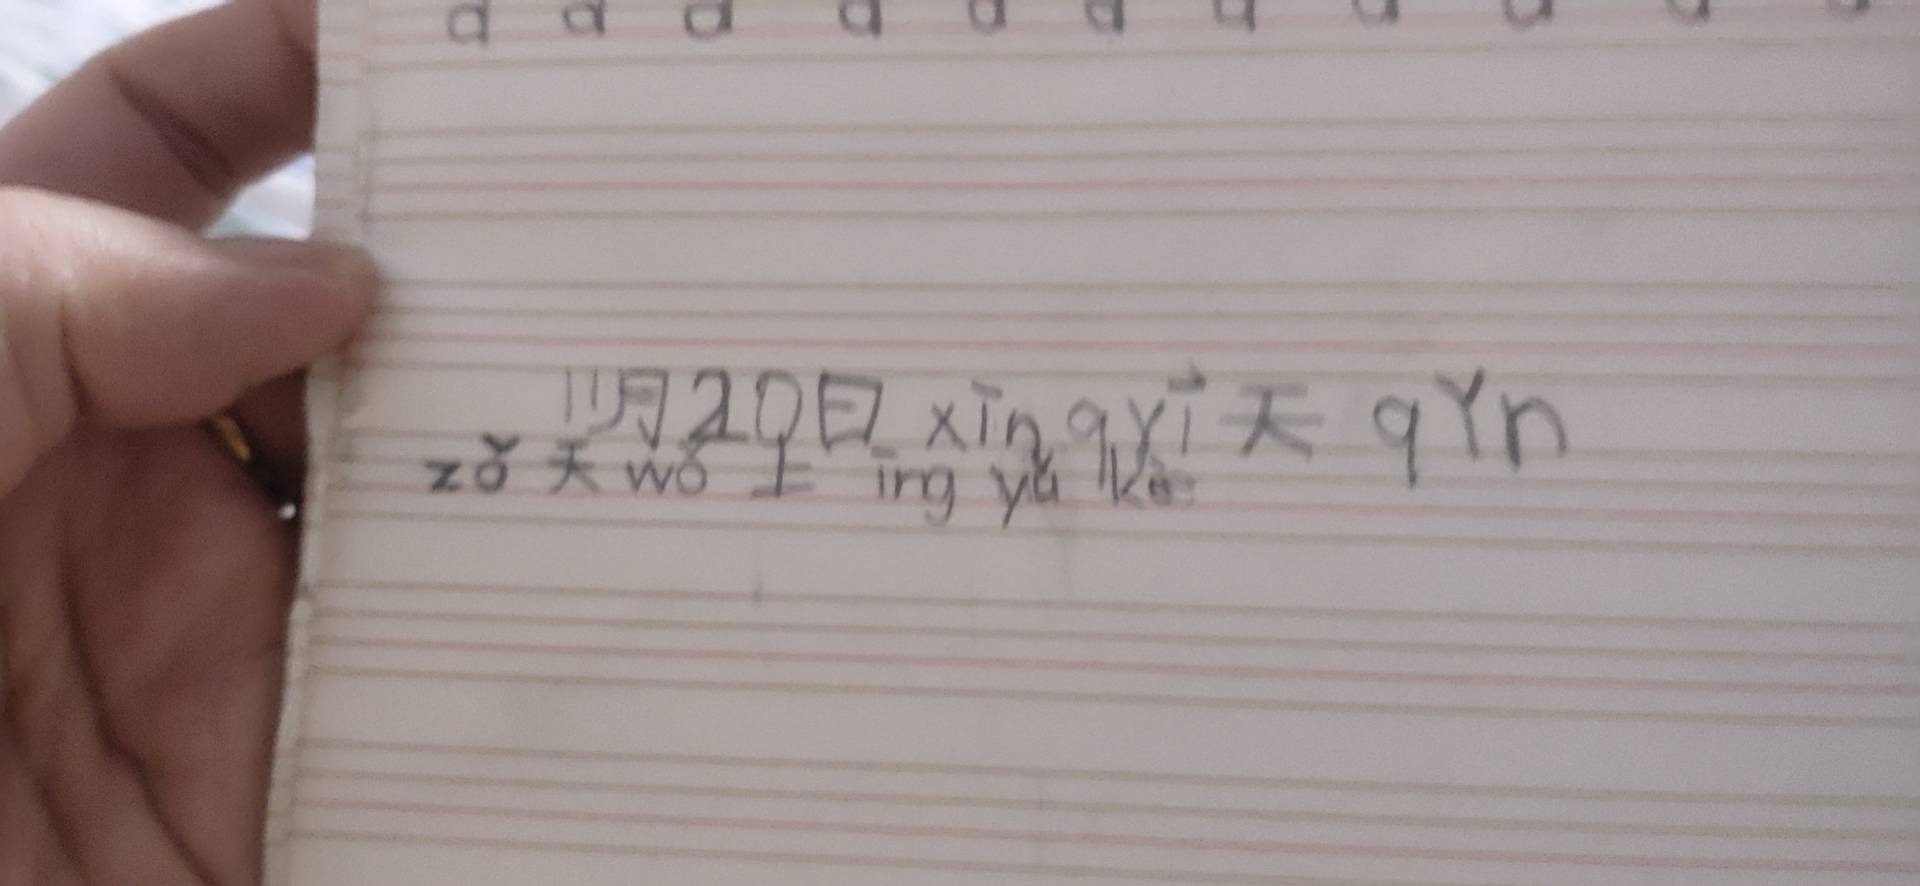 a a a a a a a a a a a
11月20日 xīng qyī 天 qYn
zǒ 天 wǒ 上 īng yǔ kè